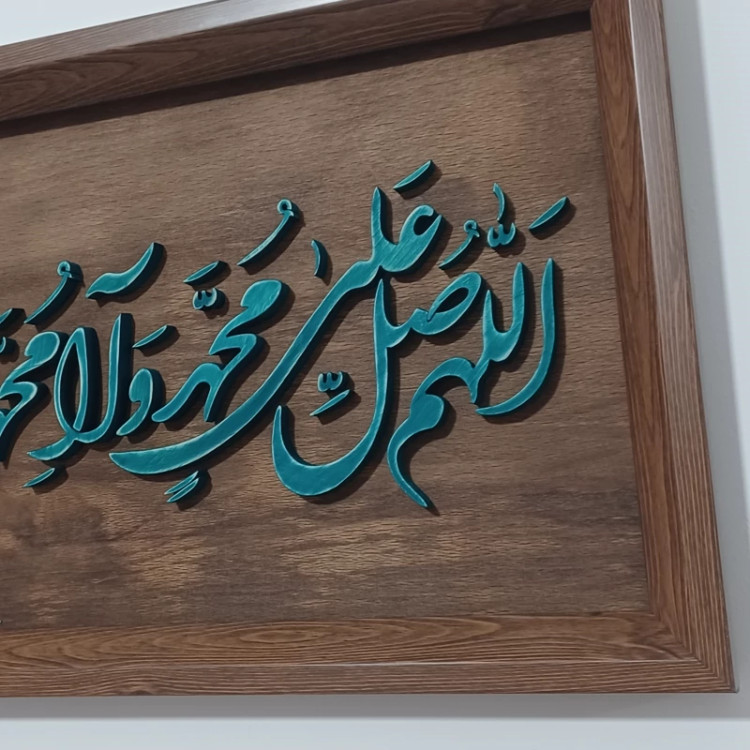 اَللّٰهُمَّ صَلِّ عَلىٰ مُحَمَّدٍ وَآلِ